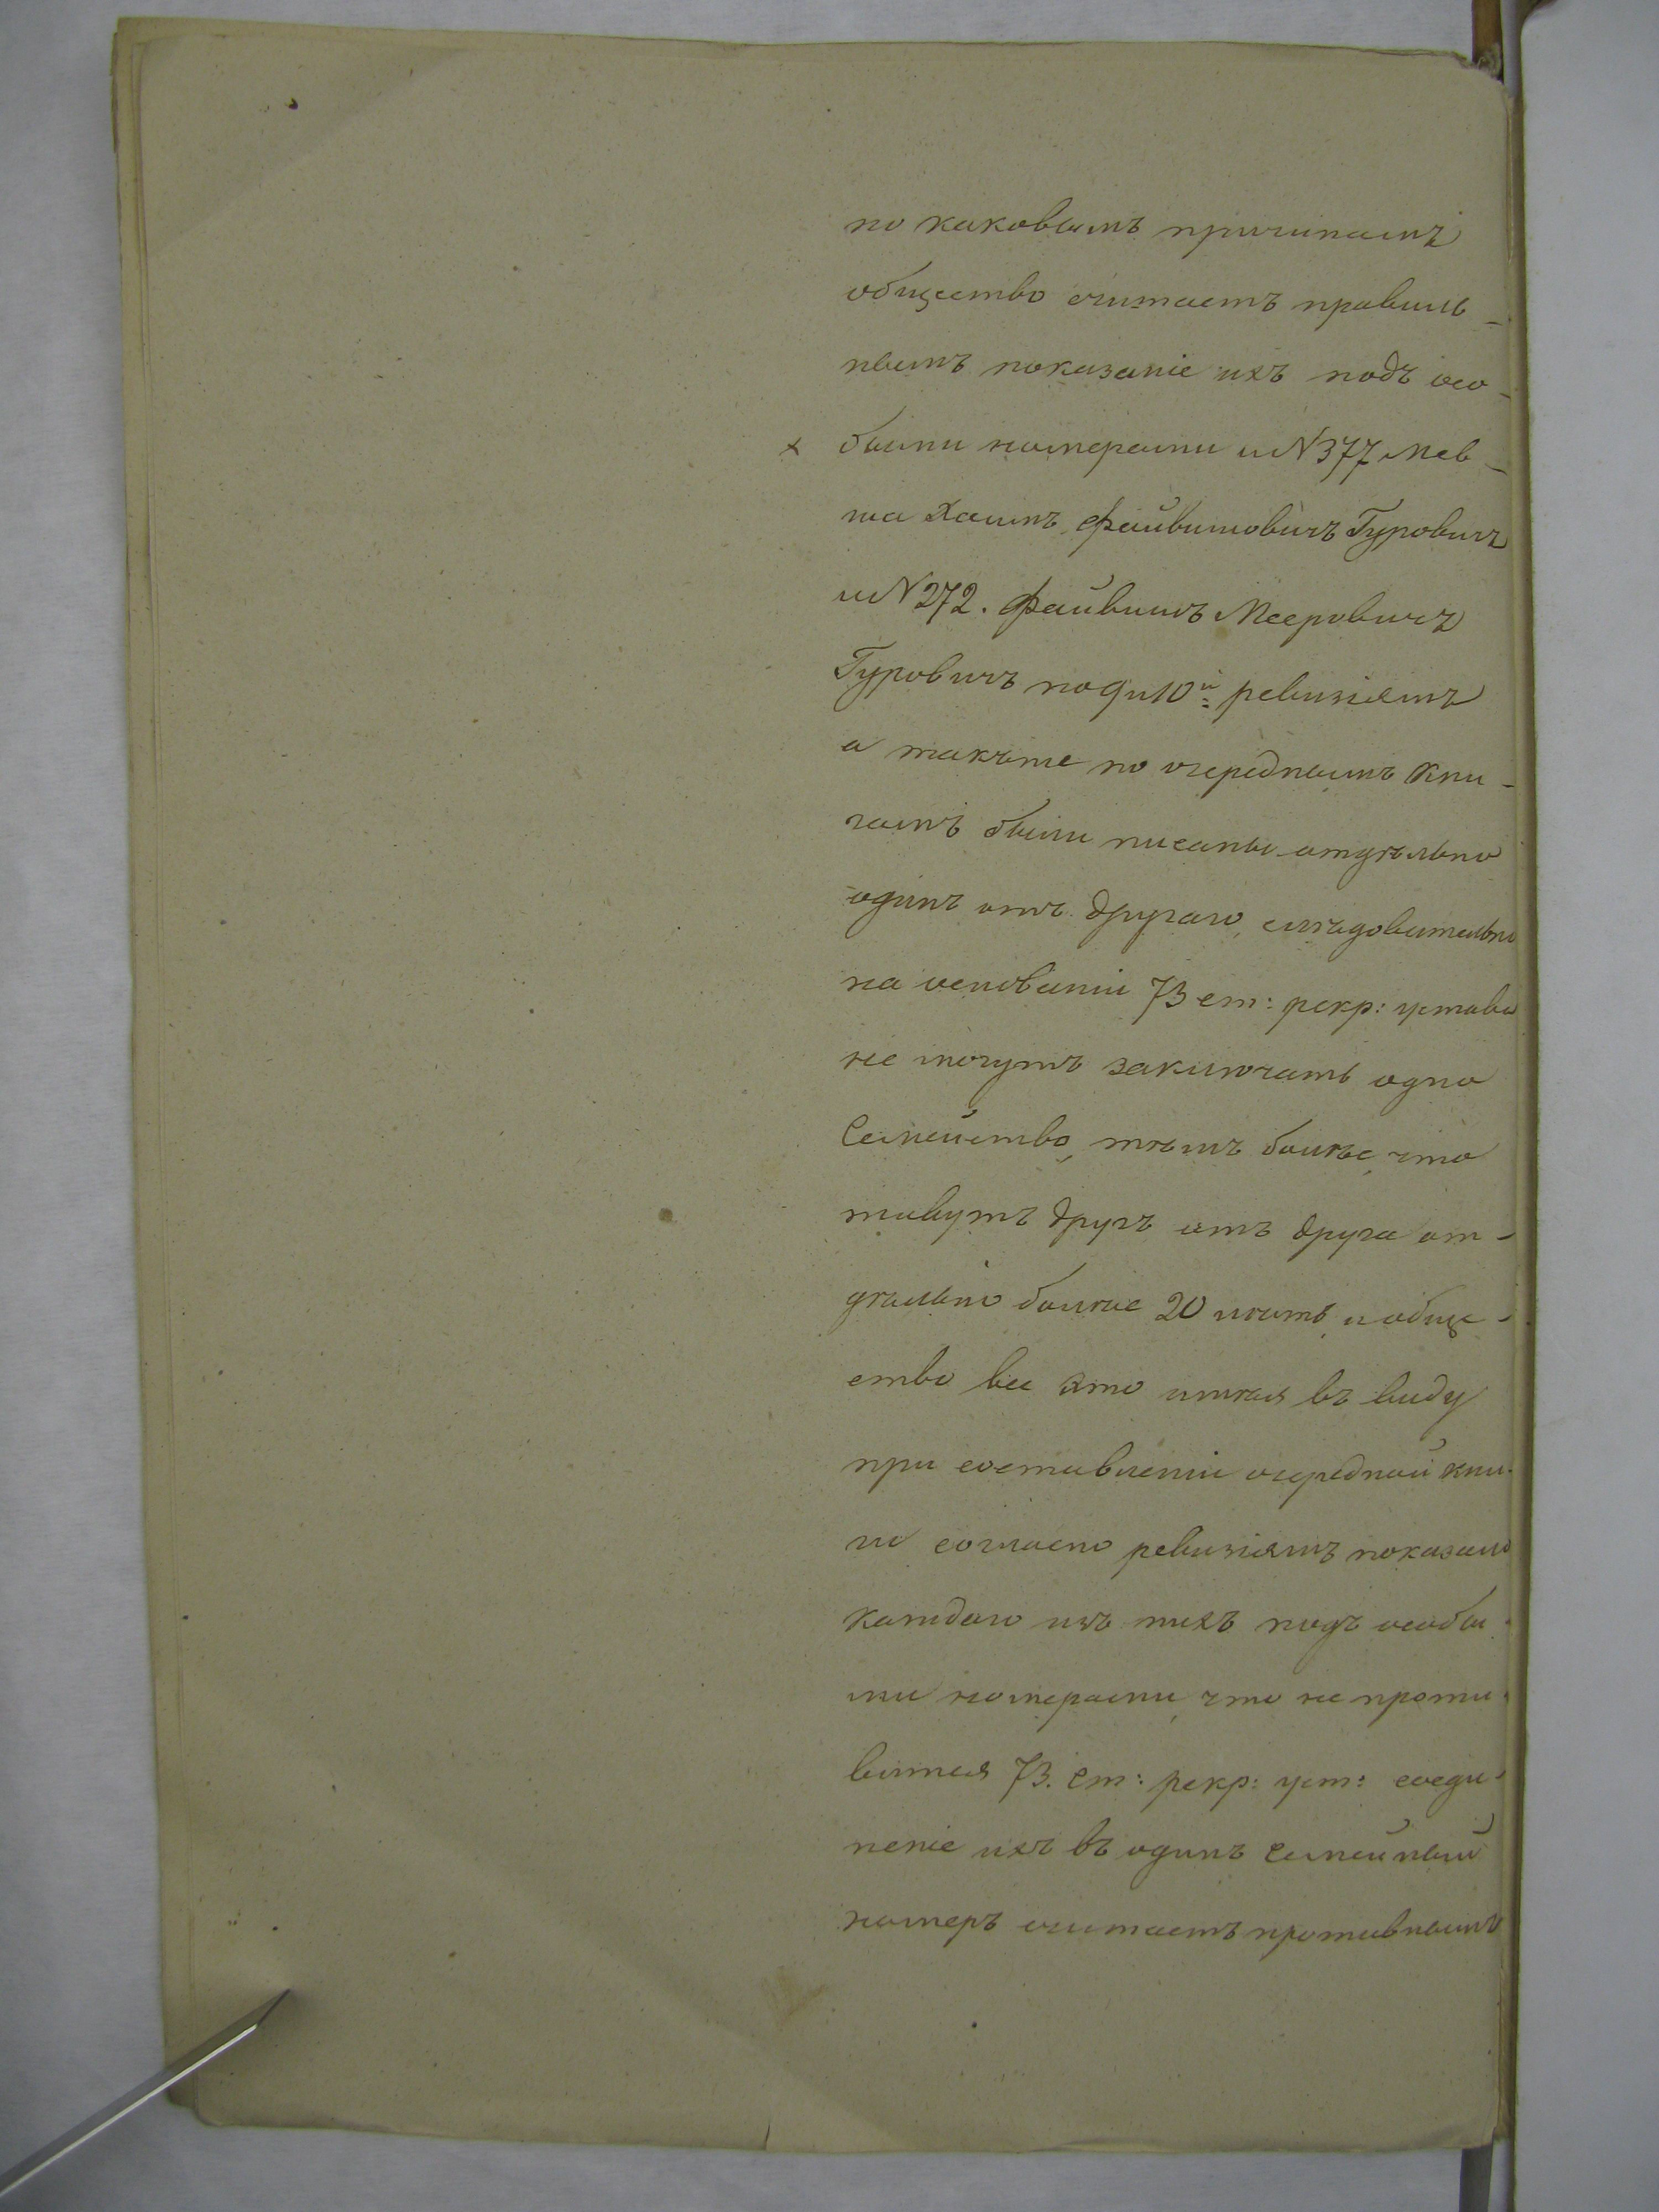 по каковымъ причинамъ
общество считаетъ правиль-
нымъ показаніе ихъ подъ осо-
х быми номерами и N 377 Мов-
ша Хаимъ Файвишовичъ Гуровичъ
и N 272. Файвишъ Мееровичъ
Гуровичъ по 9 и 10й ревизіямъ
а такъже по очереднымъ кни-
гамъ были писаны отдѣльно
одинъ отъ другаго, слѣдовательно
на основаніи 73 ст: рекр: устава
не могутъ заключать одно
Семейство, тѣмъ болѣе, что
живутъ другъ отъ друга от-
дѣльно болѣе 20 лѣтъ, и обще-
ство все это имѣя въ виду
при составленіи очередной кни-
ги согласно ревизіямъ показало
каждаго изъ нихъ подъ особы-
ми номерами, что не проти-
вится 73. ст: рекр: уст: соеди-
неніе ихъ въ одинъ Семейный
номеръ считаетъ противнымъ